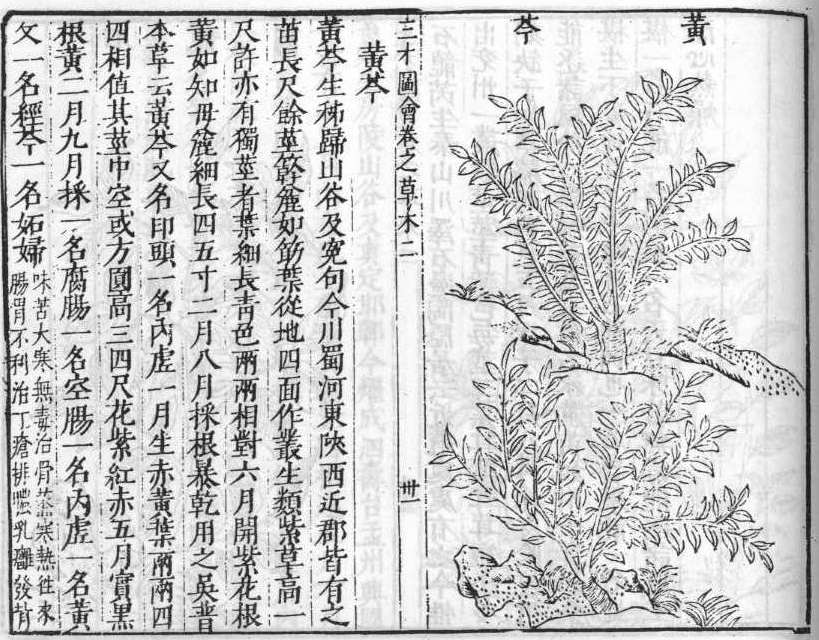 黃芩
三才圖會卷之草木二
卅一
黃芩
黃芩生秭歸山谷及寃句今川蜀河東陝西近郡皆有之
苗長尺餘莖簳麄如筯葉從地四面作叢生類紫草高一
尺許亦有獨莖者葉細長青色兩兩相對六月開紫花根
黃如知母麄細長四五寸二月八月採根暴乾用之吳普
本草云黃芩又名印頭一名內虛二月生赤黃葉兩兩四
四相值其莖中空或方圓高三四尺花紫紅赤五月實黑
根黃二月九月採一名腐腸一名空腸一名內虛一名黃
文一名經芩一名妬婦
味苦大寒無毒治骨蒸寒熱徃來
腸胃不利治丁瘡排膿乳癰發背